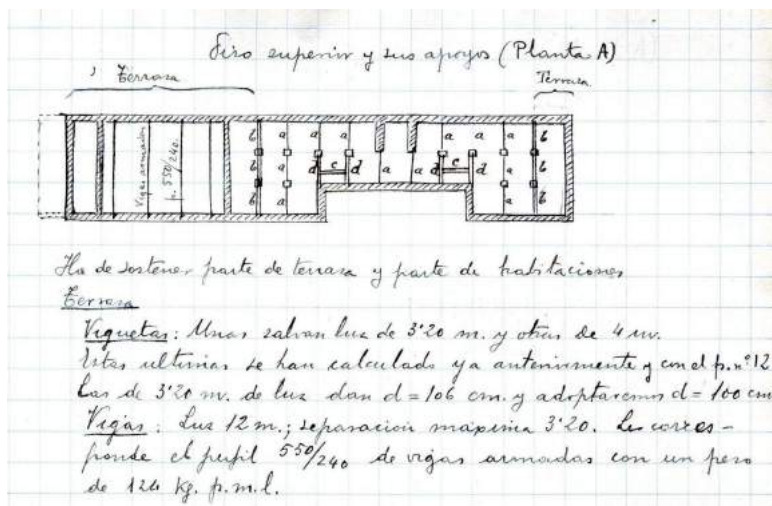 Piso superior y sus apoyos (Planta A)
Terraza
Terraza
b a a a a a a a b
b a d c d a a d c d a b
b a a b
Vigas armadas
p. 550/240.
Ha de sostener parte de terraza y parte de habitaciones
Terraza
Viguetas: Unas salvan luz de 3'20 m. y otras de 4 m.
Estas ultimas se han calculado ya anteriormente y con el p. nº 12
Las de 3'20 m. de luz dan d = 106 cm. y adoptaremos d = 100 cm
Vigas: Luz 12 m.; separación maxima 3'20. Les corres-
ponde el perfil 550/240 de vigas armadas con un peso
de 124 kg. p.m.l.